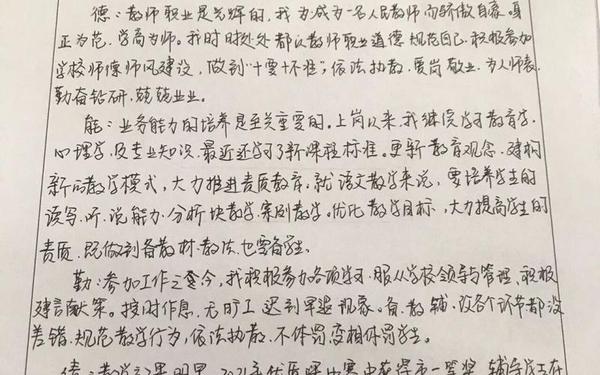 德：教师职业是光辉的，我为成为一名人民教师而骄傲自豪。身
正为范，学高为师。我时时处处都以教师职业道德规范自己。积极参加
学校师德师风建设，做到"十要十不准"，依法执教、爱岗敬业、为人师表、
勤奋钻研、兢兢业业。
能：业务能力的培养是至关重要的。上岗以来，我继续学习教育学、
心理学及专业知识。最近还学习了新课程标准。更新教育观念，建构
新的教学模式，大力推进素质教育。就语文教学来说，要培养学生的
读、写、听、说能力，分析块教学、案例教学。优化教学目标，大力提高学生的
素质，既做到备教材、教法，也要备学生。
勤：参加工作之今，我积极参加各项学习，服从学校领导与管理，积极
建言献策。按时作息，无旷工迟到早退现象。备、教、辅、改各个环节都没
差错，规范教学行为，依法执教，不体罚变相体罚学生。
绩：教学效果明显，2021年优质课比赛中获得市一等奖，辅导学生在